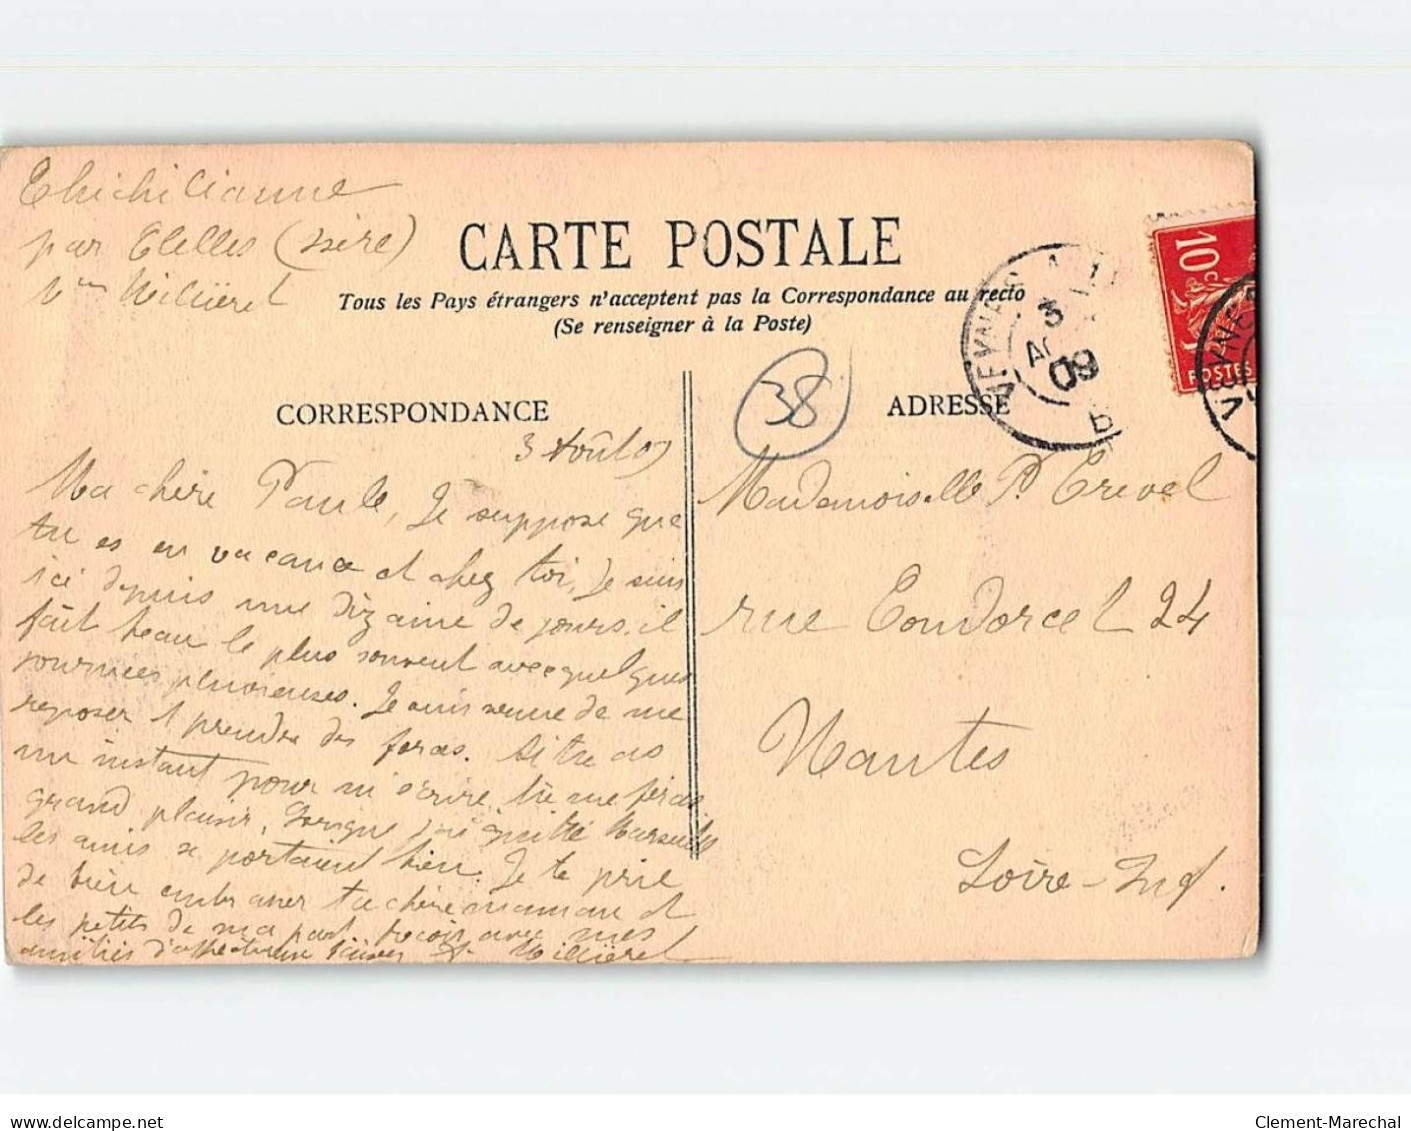 Chichilianne
par Clelles (Isère)
Millièret
CARTE POSTALE
Tous les Pays étrangers n'acceptent pas la Correspondance au recto
(Se renseigner à la Poste)
38
CORRESPONDANCE
ADRESSE
3 Août 09
Ma chère Paule, Je suppose que
tu es en vacance et chez toi, Je suis
ici depuis une dizaine de jours. il
fait beau le plus souvent avec quelques
journées pluvieuses. Je suis venue de me
reposer & prendre des forces. Si tu as
un instant pour m'écrire, tu me feras
grand plaisir, Lorsque j'ai quitté Marseille
les amis se portaient bien. Je te prie
de bien embrasser ta chère maman et
les petits de ma part. Reçois avec mes
amitiés d'affectueux baisers Millièret
Mademoiselle P. Crevel
rue Condorcet 24
Nantes
Loire-Inf.
VEYNES A
3
AO
09
10c
POSTES
VEYNES
delcampe.net
Clement-Marechal